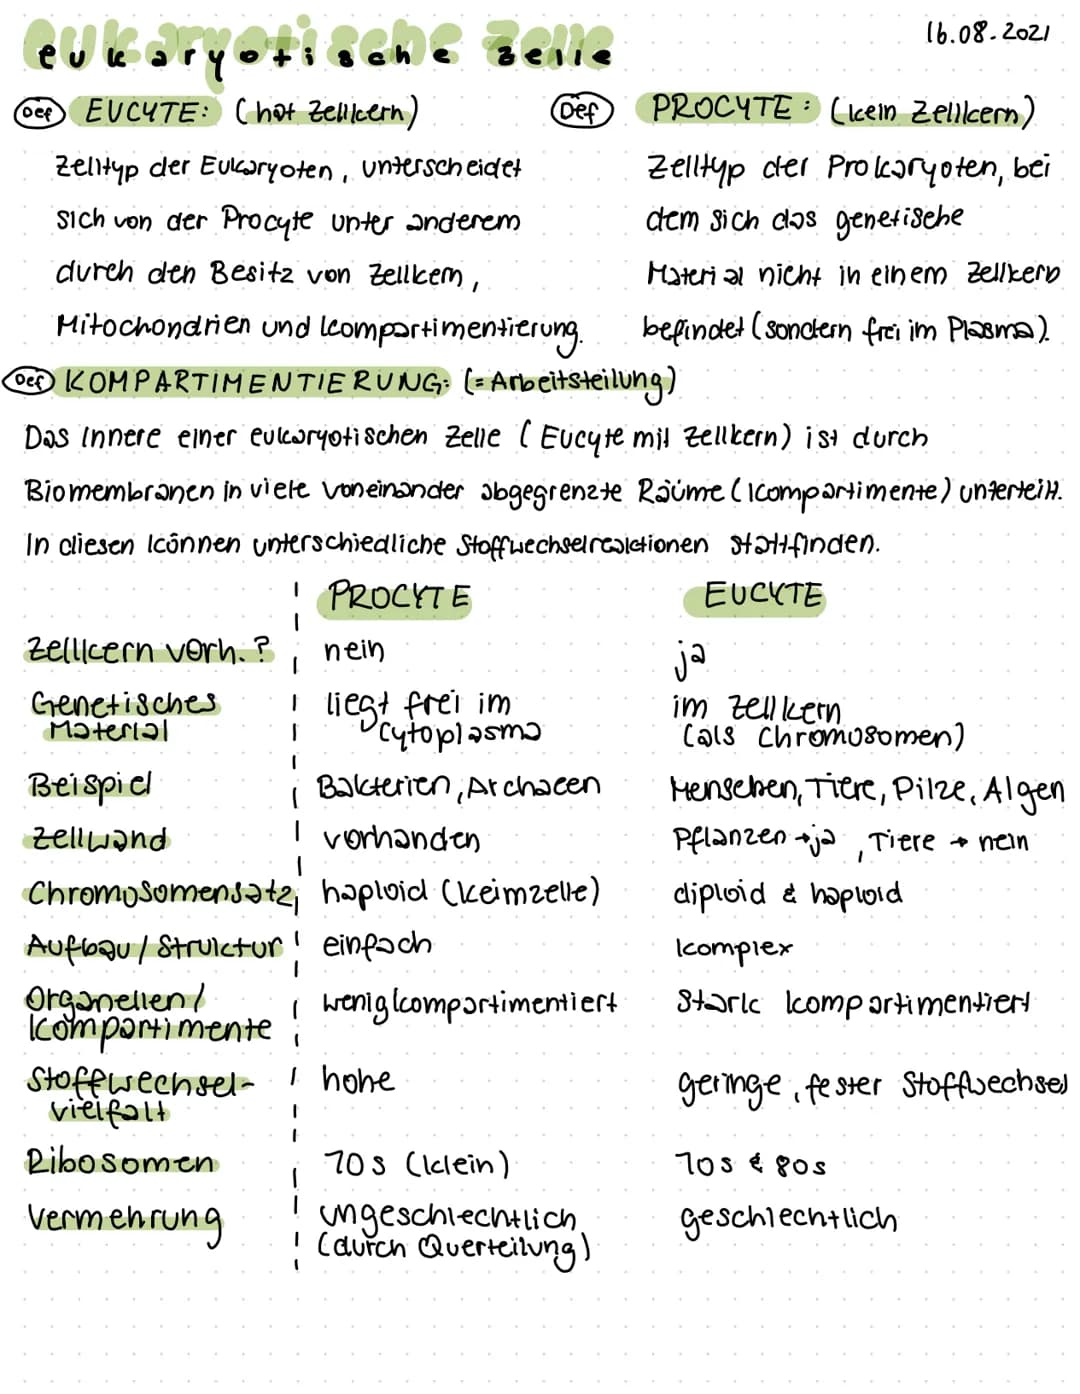 eukaryotische Zelle
16.08.2021
Def EUCYTE: (hat Zellkern)
Zelltyp der Eukaryoten, unterscheidet
sich von der Procyte unter anderem
durch den Besitz von Zellkern,
Mitochondrien und Kompartimentierung.
Def PROCYTE: (kein Zellkern)
Zelltyp der Prokaryoten, bei
dem sich das genetische
Material nicht in einem Zellkern
befindet (sondern frei im Plasma).
Def KOMPARTIMENTIERUNG: (=Arbeitsteilung)
Das Innere einer eukaryotischen Zelle (Eucyte mit Zellkern) ist durch
Biomembranen in viele voneinander abgegrenzte Räume (Kompartimente) unterteilt.
In diesen können unterschiedliche Stoffwechselreaktionen stattfinden.
PROCYTE EUCYTE
Zellkern vorh.? nein ja
Genetisches liegt frei im im Zellkern
Material Cytoplasma (als Chromosomen)
Beispiel Bakterien, Archaeen Menschen, Tiere, Pilze, Algen
Zellwand vorhanden Pflanzen → ja, Tiere → nein
Chromosomensatz haploid (Keimzelle) diploid & haploid
Aufbau/Struktur einfach komplex
Organellen/
Kompartimente wenig kompartimentiert stark kompartimentiert
Stoffwechsel- hohe geringe, fester Stoffwechsel
vielfalt
Ribosomen 70s (klein) 70s & 80s
Vermehrung ungeschlechtlich geschlechtlich
(durch Querteilung)